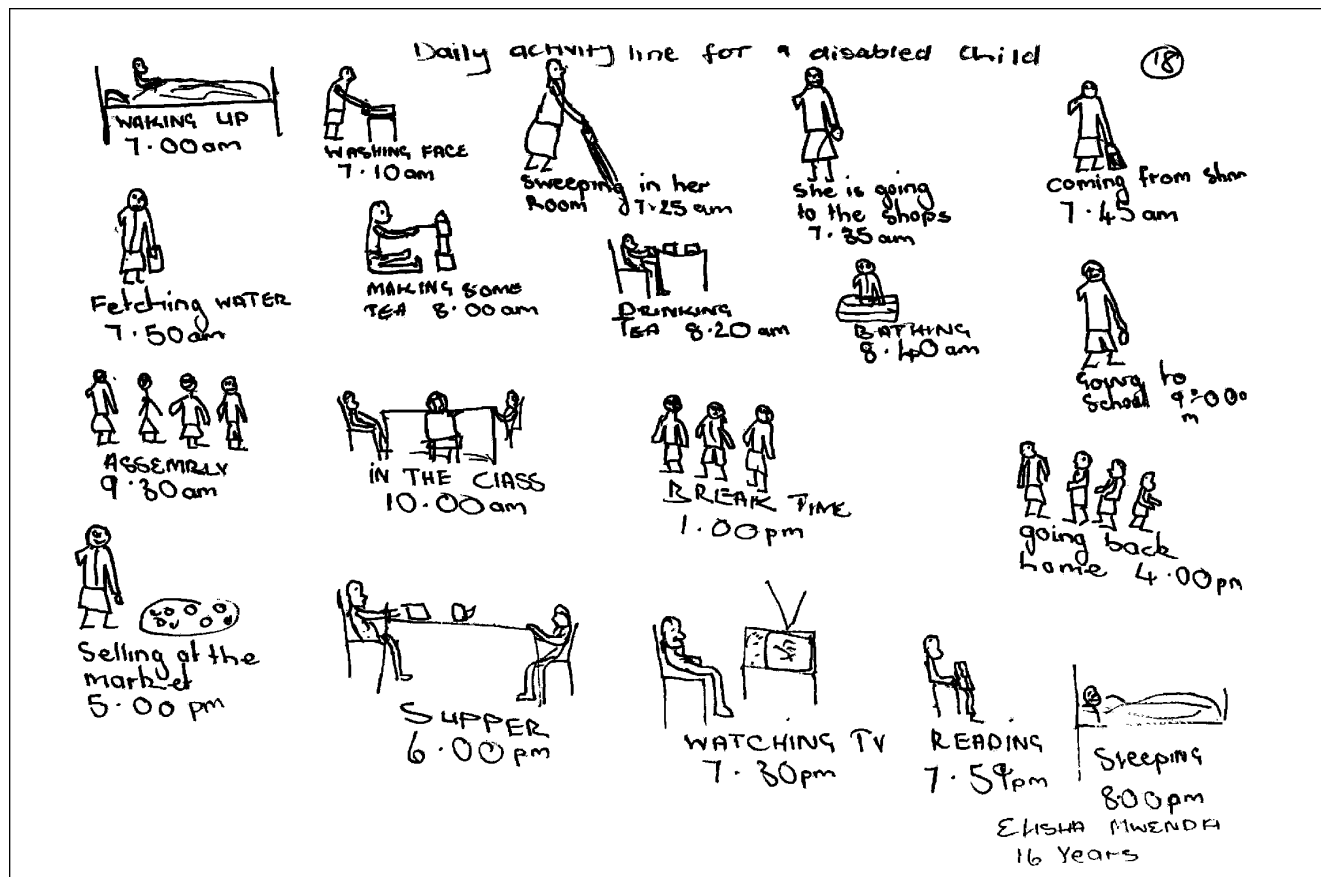 Daily activity line for a disabled child
18
WAKING UP
7.00am
WASHING FACE
7.10am
Sweeping in her
ROOM 7.25 am
She is going
to the shops
7.35am
Coming from
7.45 am
Fetching WATER
7.50am
MAKING SOME
TEA 8.00am
DRINKING
TEA 8.20am
BATHING
8.40am
going to
School
ASSEMBLY
9.30am
IN THE CLASS
10.00am
BREAK TIME
1.00pm
going back
home 4.00pm
Selling at the
market
5.00 pm
SUPPER
6.00pm
WATCHING TV
7.30pm
READING
7.59pm
Sleeping
8.00pm
ELISHA MWENDA
16 Years